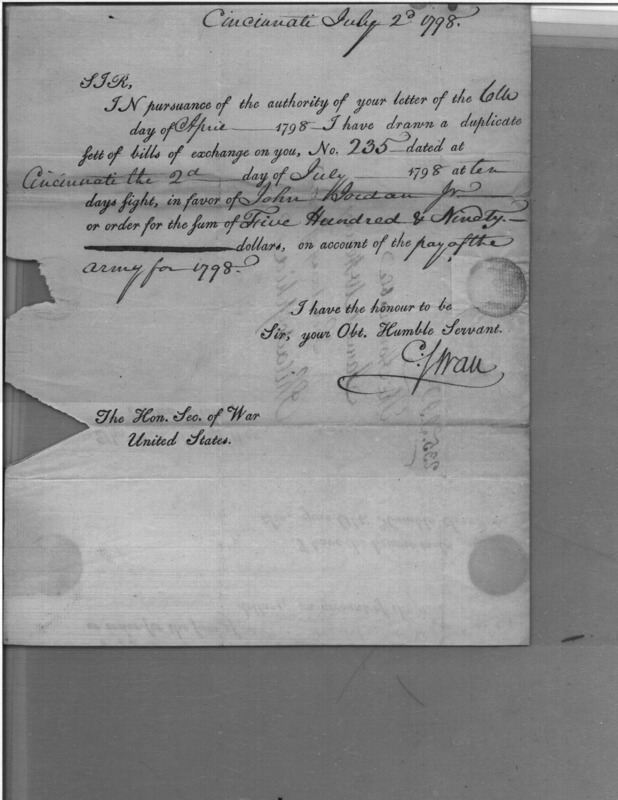 Cincinnati July 2d 1798.
SIR,
IN pursuance of the authority of your letter of the 6th
day of April 1798 I have drawn a duplicate
sett of bills of exchange on you, No. 235 dated at
Cincinnati the 2d day of July 1798 at ten
days sight, in favor of John Jordan Jr.
or order for the sum of Five Hundred & Ninety
dollars, on account of the pay of the
army for 1798.
I have the honour to be
Sir, your Obt. Humble Servant.
C. Swan
The Hon. Sec. of War
United States.